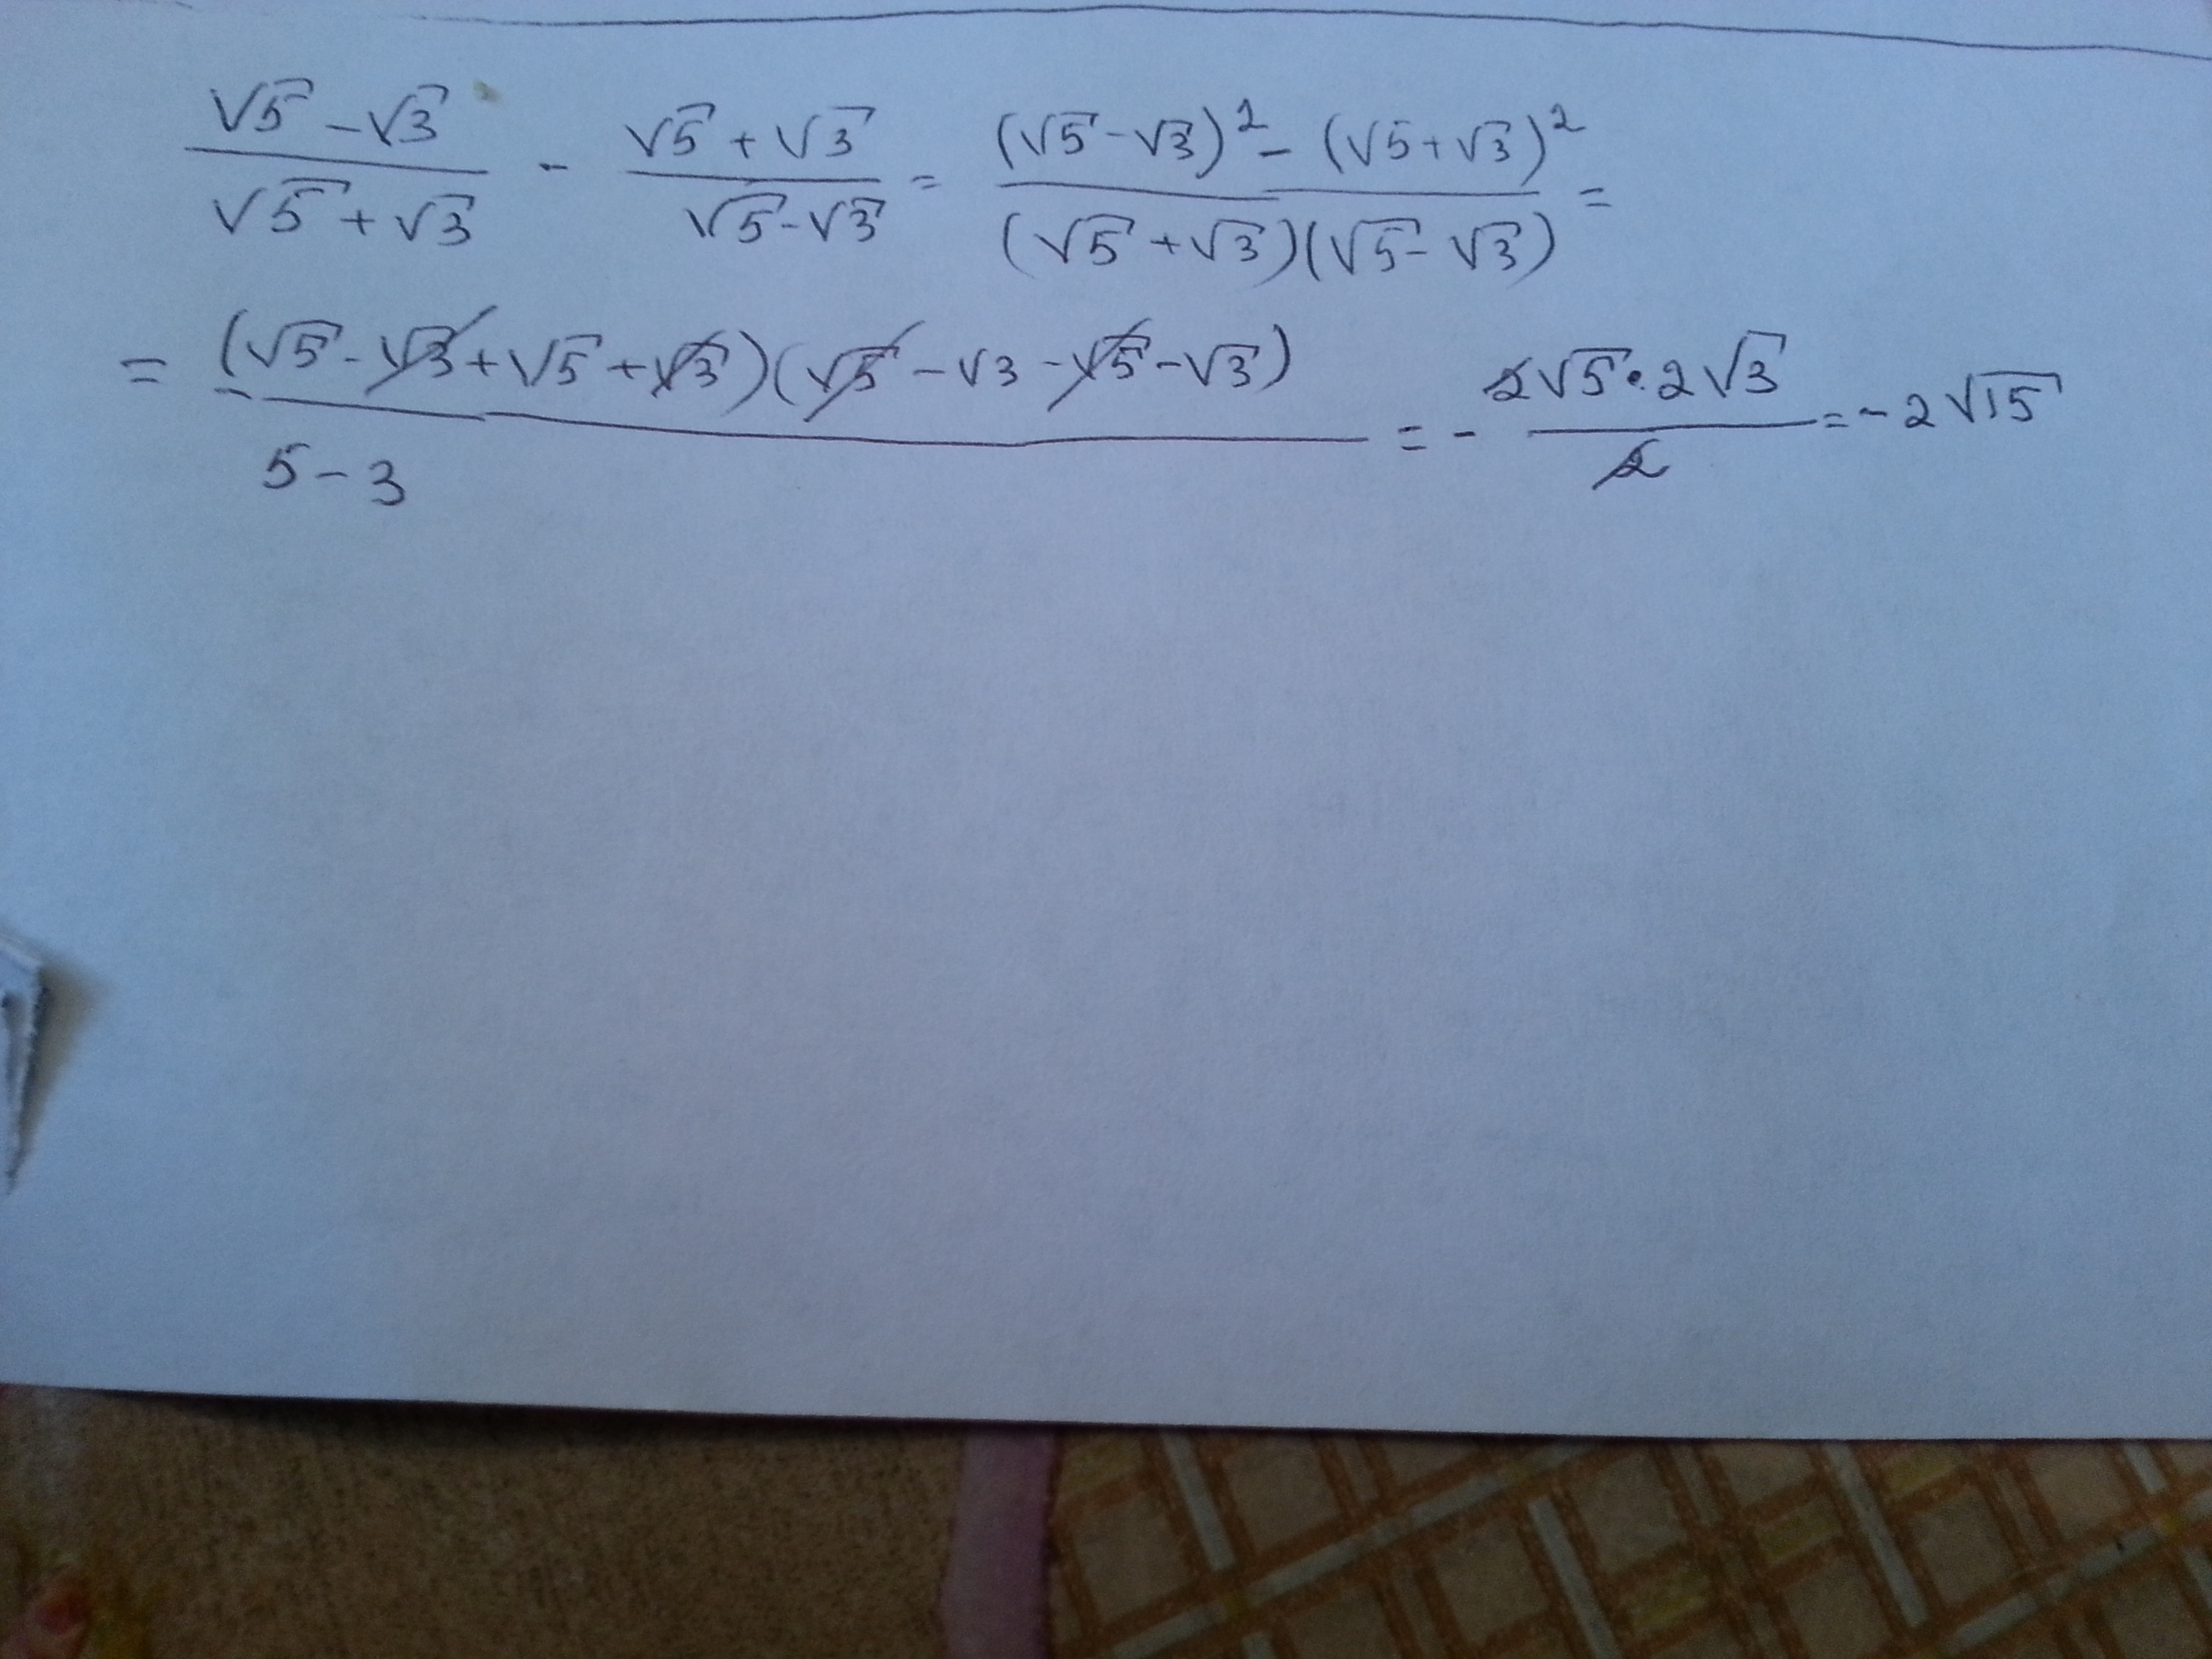 (√5 - √3)/(√5 + √3) - (√5 + √3)/(√5 - √3) = ((√5 - √3)² - (√5 + √3)²)/((√5 + √3)(√5 - √3)) =
= ((√5 - √3 + √5 + √3)(√5 - √3 - √5 - √3))/(5 - 3) = - (2√5 · 2√3)/2 = - 2√15